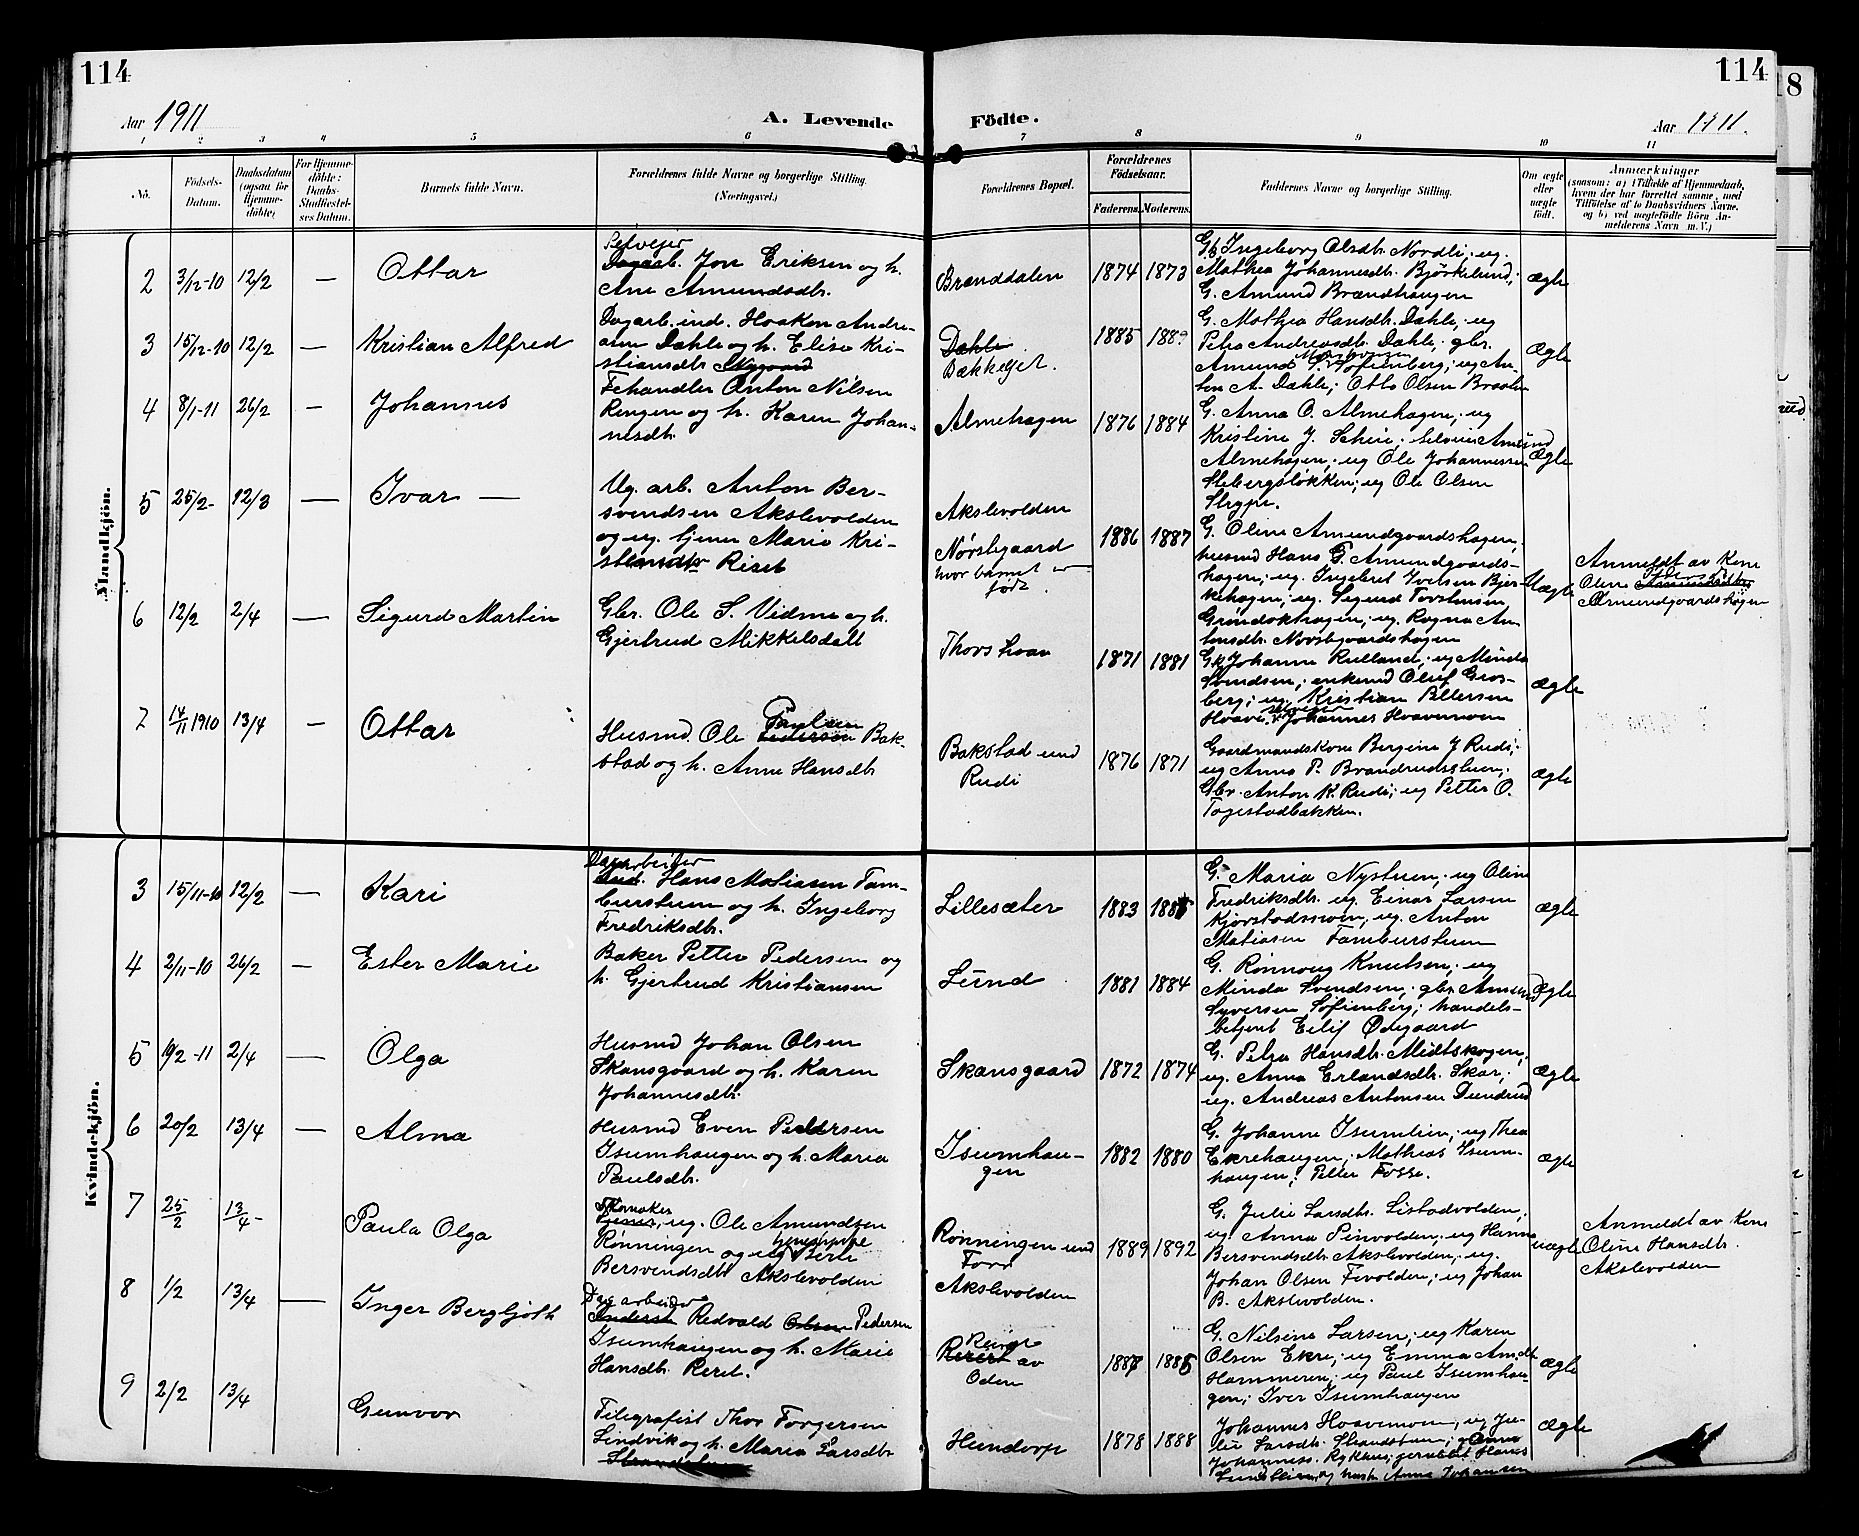 114
114
18
Aar 1911
A. Levende
Födte.
Aar 1911.
1 2 3 4 5 6 7 8 9 10 11
No.
Födsels-
Datum.
Daabsdatum
(ogsaa for
Hjemme-
döbte)
For Hjemme-
döbte:
Daabs-
Stadfæstel-
ses Datum.
Barnets fulde Navn.
Forældrenes fulde Navne og borgerlige Stilling.
(Næringsvei.)
Forældrenes Bopæl.
Forældrenes
Födselsaar.
Faderens. Moderens.
Faddernes Navne og borgerlige Stilling.
Om ægte
eller
uægte
födt.
Anmærkninger
(saasom: a) i Tilfælde af Hjemmedaab,
hvem der har forrettet samme, med
Tilföielse af to Daabsvidners Navne.
og b) ved uægtefödte Börn An-
melderens Navn m. V.)
Mandkjön.
2 3/12-10 12/2 — Ottar
Selveier
Dagarb. Jon Eriksen og h.
Ane Amundsdtr.
Brænddalen
1874 1873
Gk Ingeborg Olsdtr. Nordli; ug.
Mathea Johannesdtr. Björkelund;
G. Amund Brændhaugen
Ægte
3 15/12-10 12/2 — Kristian Alfred
Dagarb. ind. Haaken Andre-
asen Dahle og h. Elise Kri-
stiansdtr. Nygaard
Dahle
Bakkejet.
1885 188
G. Mathea Hansdtr. Dahle; ug
Petra Andreasdtr. Dahle; gbr.
Amund S. Sofienberg; ug An-
ton A. Dahle; Otto Olsen Braaten
Ægte
4 8/1-11 26/2 — Johannes
Fehandler Anton Nilsen
Ringen og h. Karen Johan-
nesdtr.
Almehagen
1876 1884
G. Anna O. Almehagen; ug
Kristine J. Scheie; selveier Amund
Almehagen; ug Ole Johannessen
Slebergsløkken; ug Ole Olsen
Stygge.
Ægte
5 25/2- 12/3 — Ivar —
Ug. arb. Anton Ber-
svendsen Akslevolden
og ug. tjener Marie Kri-
stiansdtr Riset
Akslevolden
Nørstegaard
hvor barnet er
født.
1886 1887
G. Oline Amundgaardshagen;
husmd Hans G. Amundgaards-
hagen; ug. Ingebret Iversen Bjer-
kehagen; ug. Segurd Torstensen
Grindokhagen; ug. Ragna An-
tonsdtr. Norstegaardshagen
Uægte
Anmeldt av Kone
Oline Amundsdtr
Amundgaardshagen
6 12/2 2/4 — Sigurd Martin
Gbr. Ole S. Vidme og h.
Gjertrud Mikkelsdatt
Thorshaav
1871 1881
Gk Johanne Rulland; ug Minda
Svendsen; enkemd Oluf Gros-
berg; ug. Kristian Pettersen
Hoave; selveier Johannes Hoavemoen
Ægte
7 14/11 1910 13/4 — Ottar
Husmd. Ole Paulsen Pedersen Bak-
stad og h. Anne Hansdtr
Bakstad und
Rudi
1876 1871
Gaardmandskone Bergine J Rudi;
ug Anna P. Brandrudsstuen;
Gbr. Anton K. Rudi; ug Petter O.
Togestadbakken.
Ægte
Kvindekjön.
3 15/11-10 12/2 — Kari
Dagarbeider
Ind. Hans Matiasen Tam-
burstuen og h. Ingeborg
Fredriksdtr.
Lillesæter
1883 1885
G. Maria Nystuen; ug Oline
Fredriksdtr. ug. Einar Larsen
Kjørstadsmoen; ug. Anton
Matiasen Tamburstuen
Ægte
4 2/11-10 26/2 — Ester Marie
Baker Petter Pedersen og
h. Gjertrud Kristiansen
Lund
1881 1884
G. Rønnoug Knutsen; ug
Minda Svendsen; gbr. Amund
Syversen Sofienberg; handels-
betjent Eilif Ødegaard
Ægte
5 19/2-11 2/4 — Olga
Husmd Johan Olsen
Skansgaard og h. Karen
Johannesdtr.
Skansgaard
1872 1874
G. Petra Hansdtr. Midtskogen;
ug. Anna Erlandsdtr. Skar;
ug. Andreas Antonsen Dundrud
Ægte
6 20/2 13/4 — Alma
Husmd Even Pedersen
Isumhaugen og h. Maria
Paulsdtr.
Isumhau-
gen
1882 1880
G. Johanne Isumlien; ug Thea
Ekrehaugen; Mathias Isum-
haugen; Petter Fosse.
Ægte
7 25/2 13/4- Paula Olga
Skomaker
Tjener, ug. Ole Amundsen
Rønningen og ug tjenestepige Berte
Bersvendsdtr. Akslevolden
Rønningen und
Forr
Akslevolden
1889 1892
G. Julie Larsdtr. Listadvolden;
ug Anna Pinvolden; ug Hanna
Bersvendsdtr. Akslevolden; ug.
Johan Olsen Fivolden; ug Johan
B. Akslevolden.
uægte
Anmeldt av Kone
Oline Hansdtr.
Akslevolden
8 1/2 13/4 — Inger Bergljoth
Dagarbeider
Redvald Olsen Pedersen
Isumhaugen og h. Marie
Hansdtr. Reret.
av
Oden
1887 1885
G. Nilsine Larsen; ug Karen
Olsen Ekre; ug Emma Amdtr
Hammeren; ug Paul Isumhau-
gen; Iver Isumhaugen
Ægte
9 2/2 13/4 Gunvor
Telegrafist Thor Torgersen
Lindvik og h. Maria Larsdtr
Hundorp
1878 1888
Johannes Hoavemoen; ug Ju-
lie Larsdtr. Strandstuen; Anna
Johanness. Rykhus; Hans
Anna Johansen
Ægte